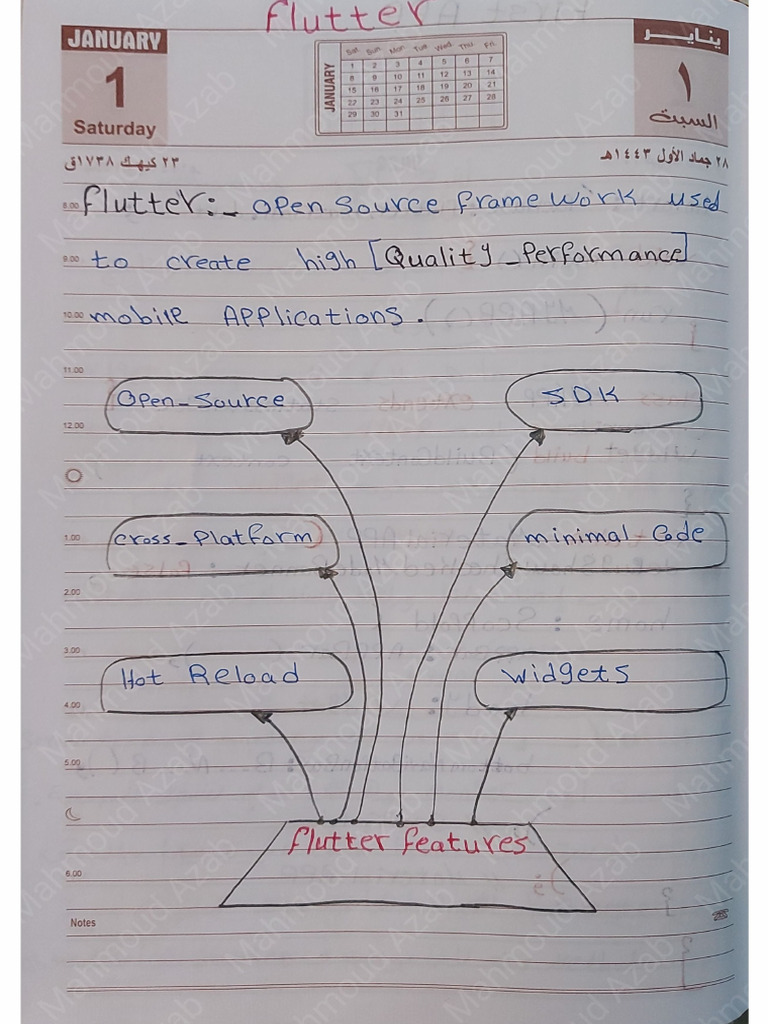 flutter
JANUARY
1
Saturday
JANUARY
Sat Sun Mon Tue Wed Thu Fri
1 2 3 4 5 6 7
8 9 10 11 12 13 14
15 16 17 18 19 20 21
22 23 24 25 26 27 28
29 30 31
يناير
١
السبت
٢٣ كيهك ١٧٣٨ق
٢٨ جماد الأول ١٤٤٣هـ
8.00 flutter:- open source frame work used
9.00 to create high [Quality_Performance]
10.00 mobile Applications.
11.00
Open_Source
SDK
12.00
1.00
cross_Platform
minimal-Code
2.00
3.00
Hot Reload
widgets
4.00
5.00
flutter features
6.00
Notes
Mahmoud Azab